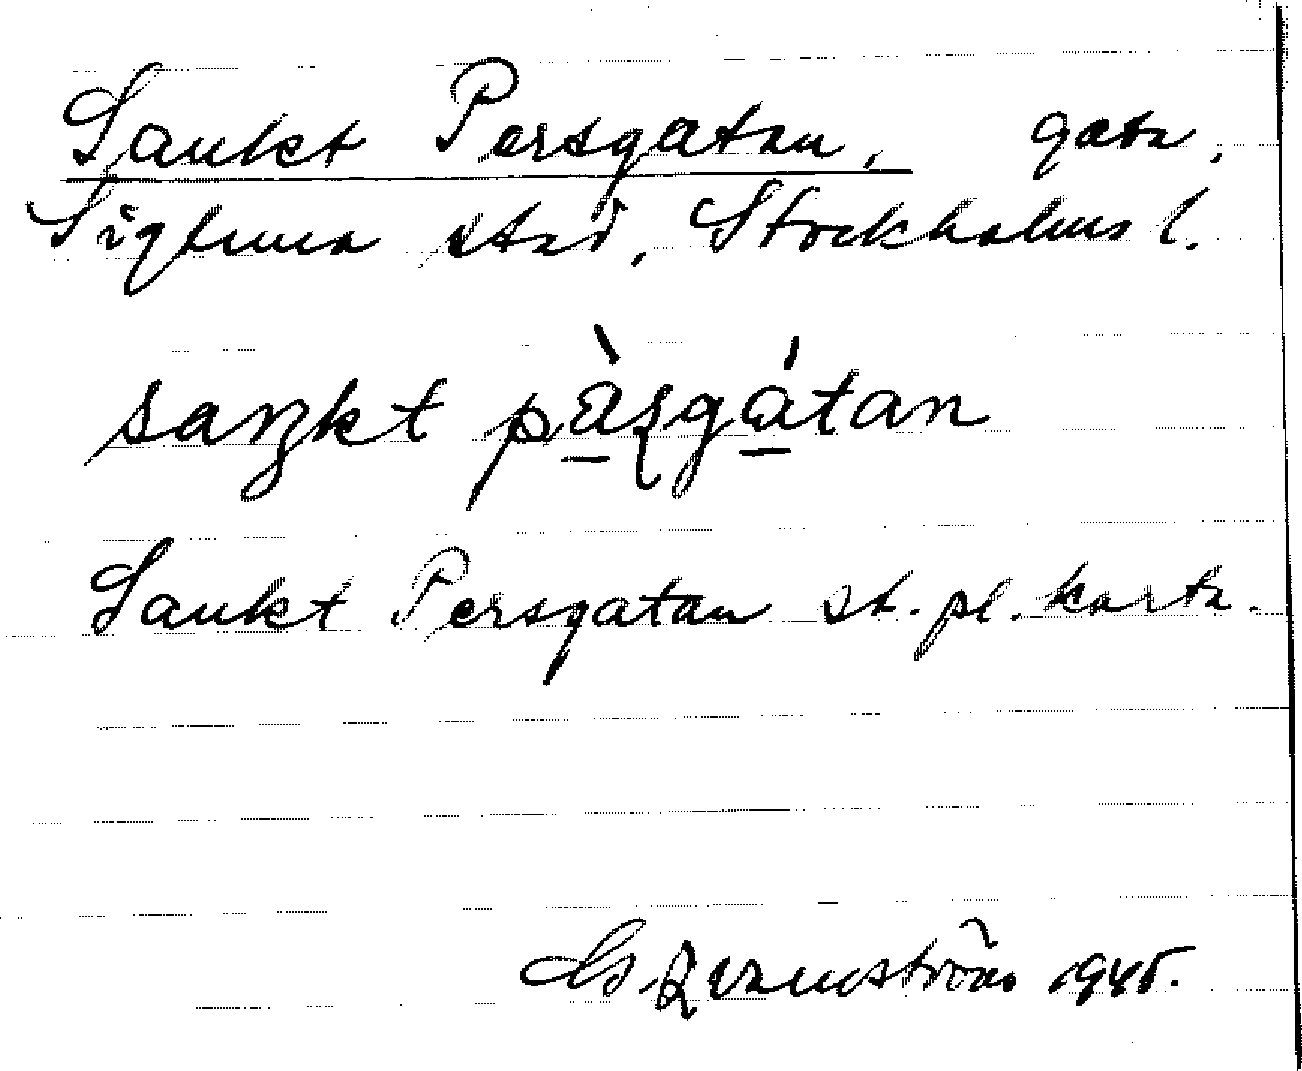 Sankt Persgatan, gata,
Sigtuna stad, Stockholms l.
saŋkt pä̀ʂgátan
Sankt Persgatan st. pl. karta.
Qvarnström 1945.